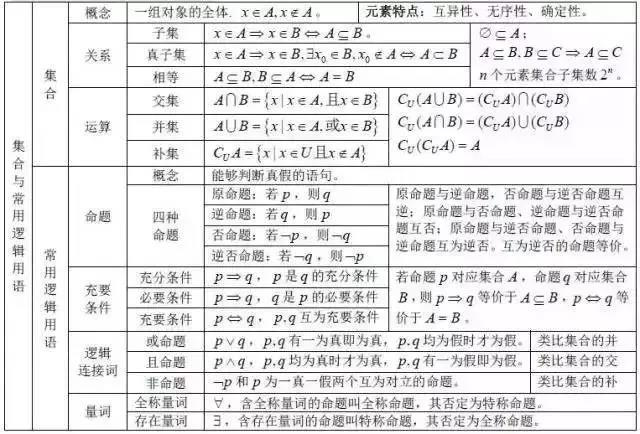 集合与常用逻辑用语
集合
概念
一组对象的全体. x∈A, x∉A。
元素特点：互异性、无序性、确定性。
关系
子集
x∈A⇒x∈B⇔A⊆B。
真子集
x∈A⇒x∈B,∃x₀∈B,x₀∉A⇔A⊂B
相等
A⊆B,B⊆A⇔A=B
∅⊆A；
A⊆B,B⊆C⇒A⊆C
n个元素集合子集数2ⁿ。
运算
交集
A⋂B={x|x∈A,且x∈B}
并集
A⋃B={x|x∈A,或x∈B}
补集
C_U A={x|x∈U且x∉A}
C_U(A⋃B)=(C_U A)⋂(C_U B)
C_U(A⋂B)=(C_U A)⋃(C_U B)
C_U(C_U A)=A
常用逻辑用语
命题
概念
能够判断真假的语句。
四种
命题
原命题：若p，则q
逆命题：若q，则p
否命题：若¬p，则¬q
逆否命题：若¬q，则¬p
原命题与逆命题，否命题与逆否命题互
逆；原命题与否命题、逆命题与逆否命
题互否；原命题与逆否命题、否命题与
逆命题互为逆否。互为逆否的命题等价。
充要
条件
充分条件
p⇒q，p是q的充分条件
必要条件
p⇒q，q是p的必要条件
充要条件
p⇔q，p,q互为充要条件
若命题p对应集合A，命题q对应集合
B，则p⇒q等价于A⊆B，p⇔q等
价于A=B。
逻辑
连接词
或命题
p∨q，p,q有一为真即为真，p,q均为假时才为假。
类比集合的并
且命题
p∧q，p,q均为真时才为真，p,q有一为假即为假。
类比集合的交
非命题
¬p和p为一真一假两个互为对立的命题。
类比集合的补
量词
全称量词
∀，含全称量词的命题叫全称命题，其否定为特称命题。
存在量词
∃，含存在量词的命题叫特称命题，其否定为全称命题。